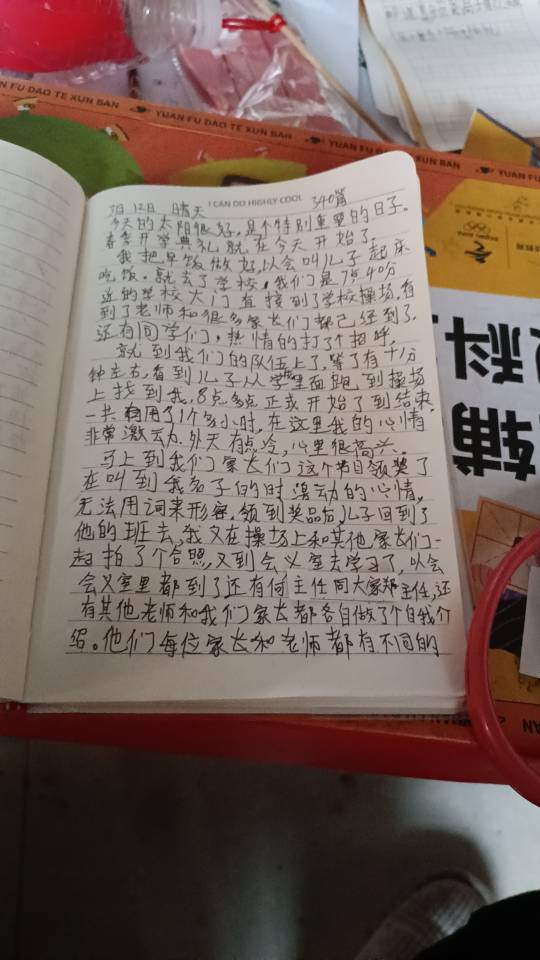 YUAN FU DAO TE XUN BAN
YUAN FU DAO TE XUN BAN
I CAN DO HIGHLY COOL
3月12日 晴天 340篇
今天的太阳很好,是个特别重要的日子。
春季开学典礼就在今天开始了。
我把早饭做好,以会叫儿子起床
吃饭。就去了学校,我们是7点40分
近的学校大门直接到了学校操场,看
到了老师和很多家长们都已经到了,
还有同学们,热情的打了个招呼,
就到我们的队伍上了,等了有十八分
钟左右,看到儿子从学校里面跑到操场
上找到我,8点多点正式开始了到结束,
一共用了1个多小时,在这里我的心情
非常激动,外天有点冷,心里很高兴。
马上到我们家长们这个节目领奖了
在叫到我名子的时激动的心情,
无法用词来形容,领到奖品后,儿子回到了
他的班去,我又在操场上和其他家长们一
起拍了个合照,又到会义室去学习了,以会
会义室里都到了还有何主任同大家郑主任,还
有其他老师和我们家长都各自做了个自我介
绍。他们每位家长和老师都有不同的
科
辅